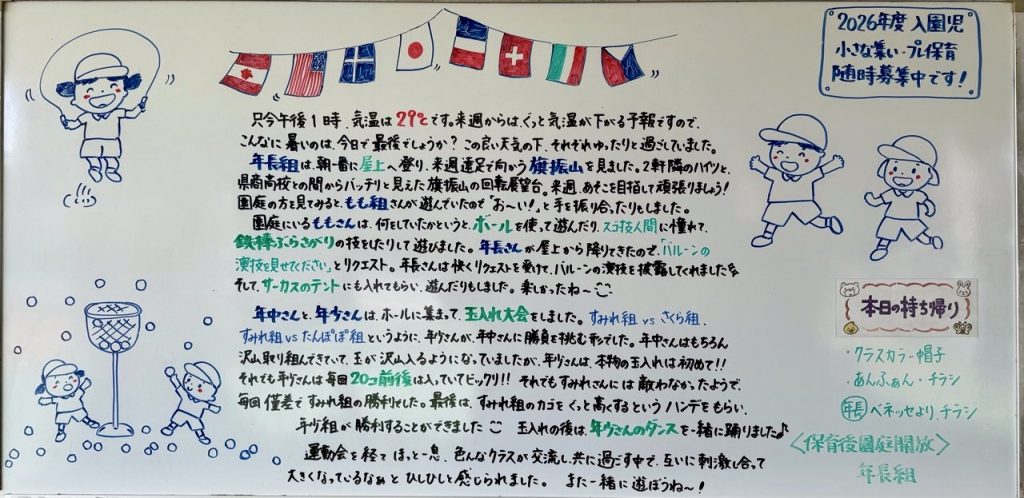 2026年度 入園児
小さな集い・プレ保育
随時募集中です！
只今午後1時、気温は29℃です。来週からは、ぐっと気温が下がる予報ですので、
こんなに暑いのは、今日で最後でしょうか？この良い天気の下、それぞれゆったりと過ごしていました。
年長組は、朝一番に屋上へ登り、来週遠足で向かう旗振山を見ました。2軒隣のハイツと、
県商高校との間からバッチリと見えた旗振山の回転展望台。来週、あそこを目指して頑張りましょう！
園庭の方を見てみると、もも組さんが遊んでいたので「お〜い！」と手を振り合ったりもしました。
園庭にいるももさんは、何をしていたかというと、ボールを使って遊んだり、スゴ技人間に憧れて、
鉄棒ぶらさがりの技をしたりして遊びました。年長さんが屋上から降りてきたので、「バルーンの
演技を見せてください」とリクエスト。年長さんは快くリクエストを受けて、バルーンの演技を披露してくれました
そして、サーカスのテントにも入れてもらい、遊んだりもしました。楽しかったね〜
年中さんと、年少さんは、ホールに集まって、玉入れ大会をしました。すみれ組 vs さくら組、
すみれ組 vs たんぽぽ組というように、年少さんが、年中さんに勝負を挑む形でした。年中さんはもちろん
沢山取り組んできていて、玉が沢山入るようになっていましたが、年少さんは、本物の玉入れは初めて!!
それでも年少さんは毎回20コ前後は入っていてビックリ!! それでもすみれさんには敵わなかったようで、
毎回僅差ですみれ組の勝利でした。最後は、すみれ組のカゴをぐっと高くするというハンデをもらい、
年少組が勝利することができました 玉入れの後は、年少さんのダンスを一緒に踊りました♪
運動会を経てほっと一息、色んなクラスが交流し、共に過ごす中で、互いに刺激し合って
大きくなっているなぁとひしひしと感じられました。また一緒に遊ぼうね〜！
本日の持ち帰り
・クラスカラー帽子
・あんふぁん・チラシ
年長 ベネッセより、チラシ
＜保育後園庭開放＞
年長組